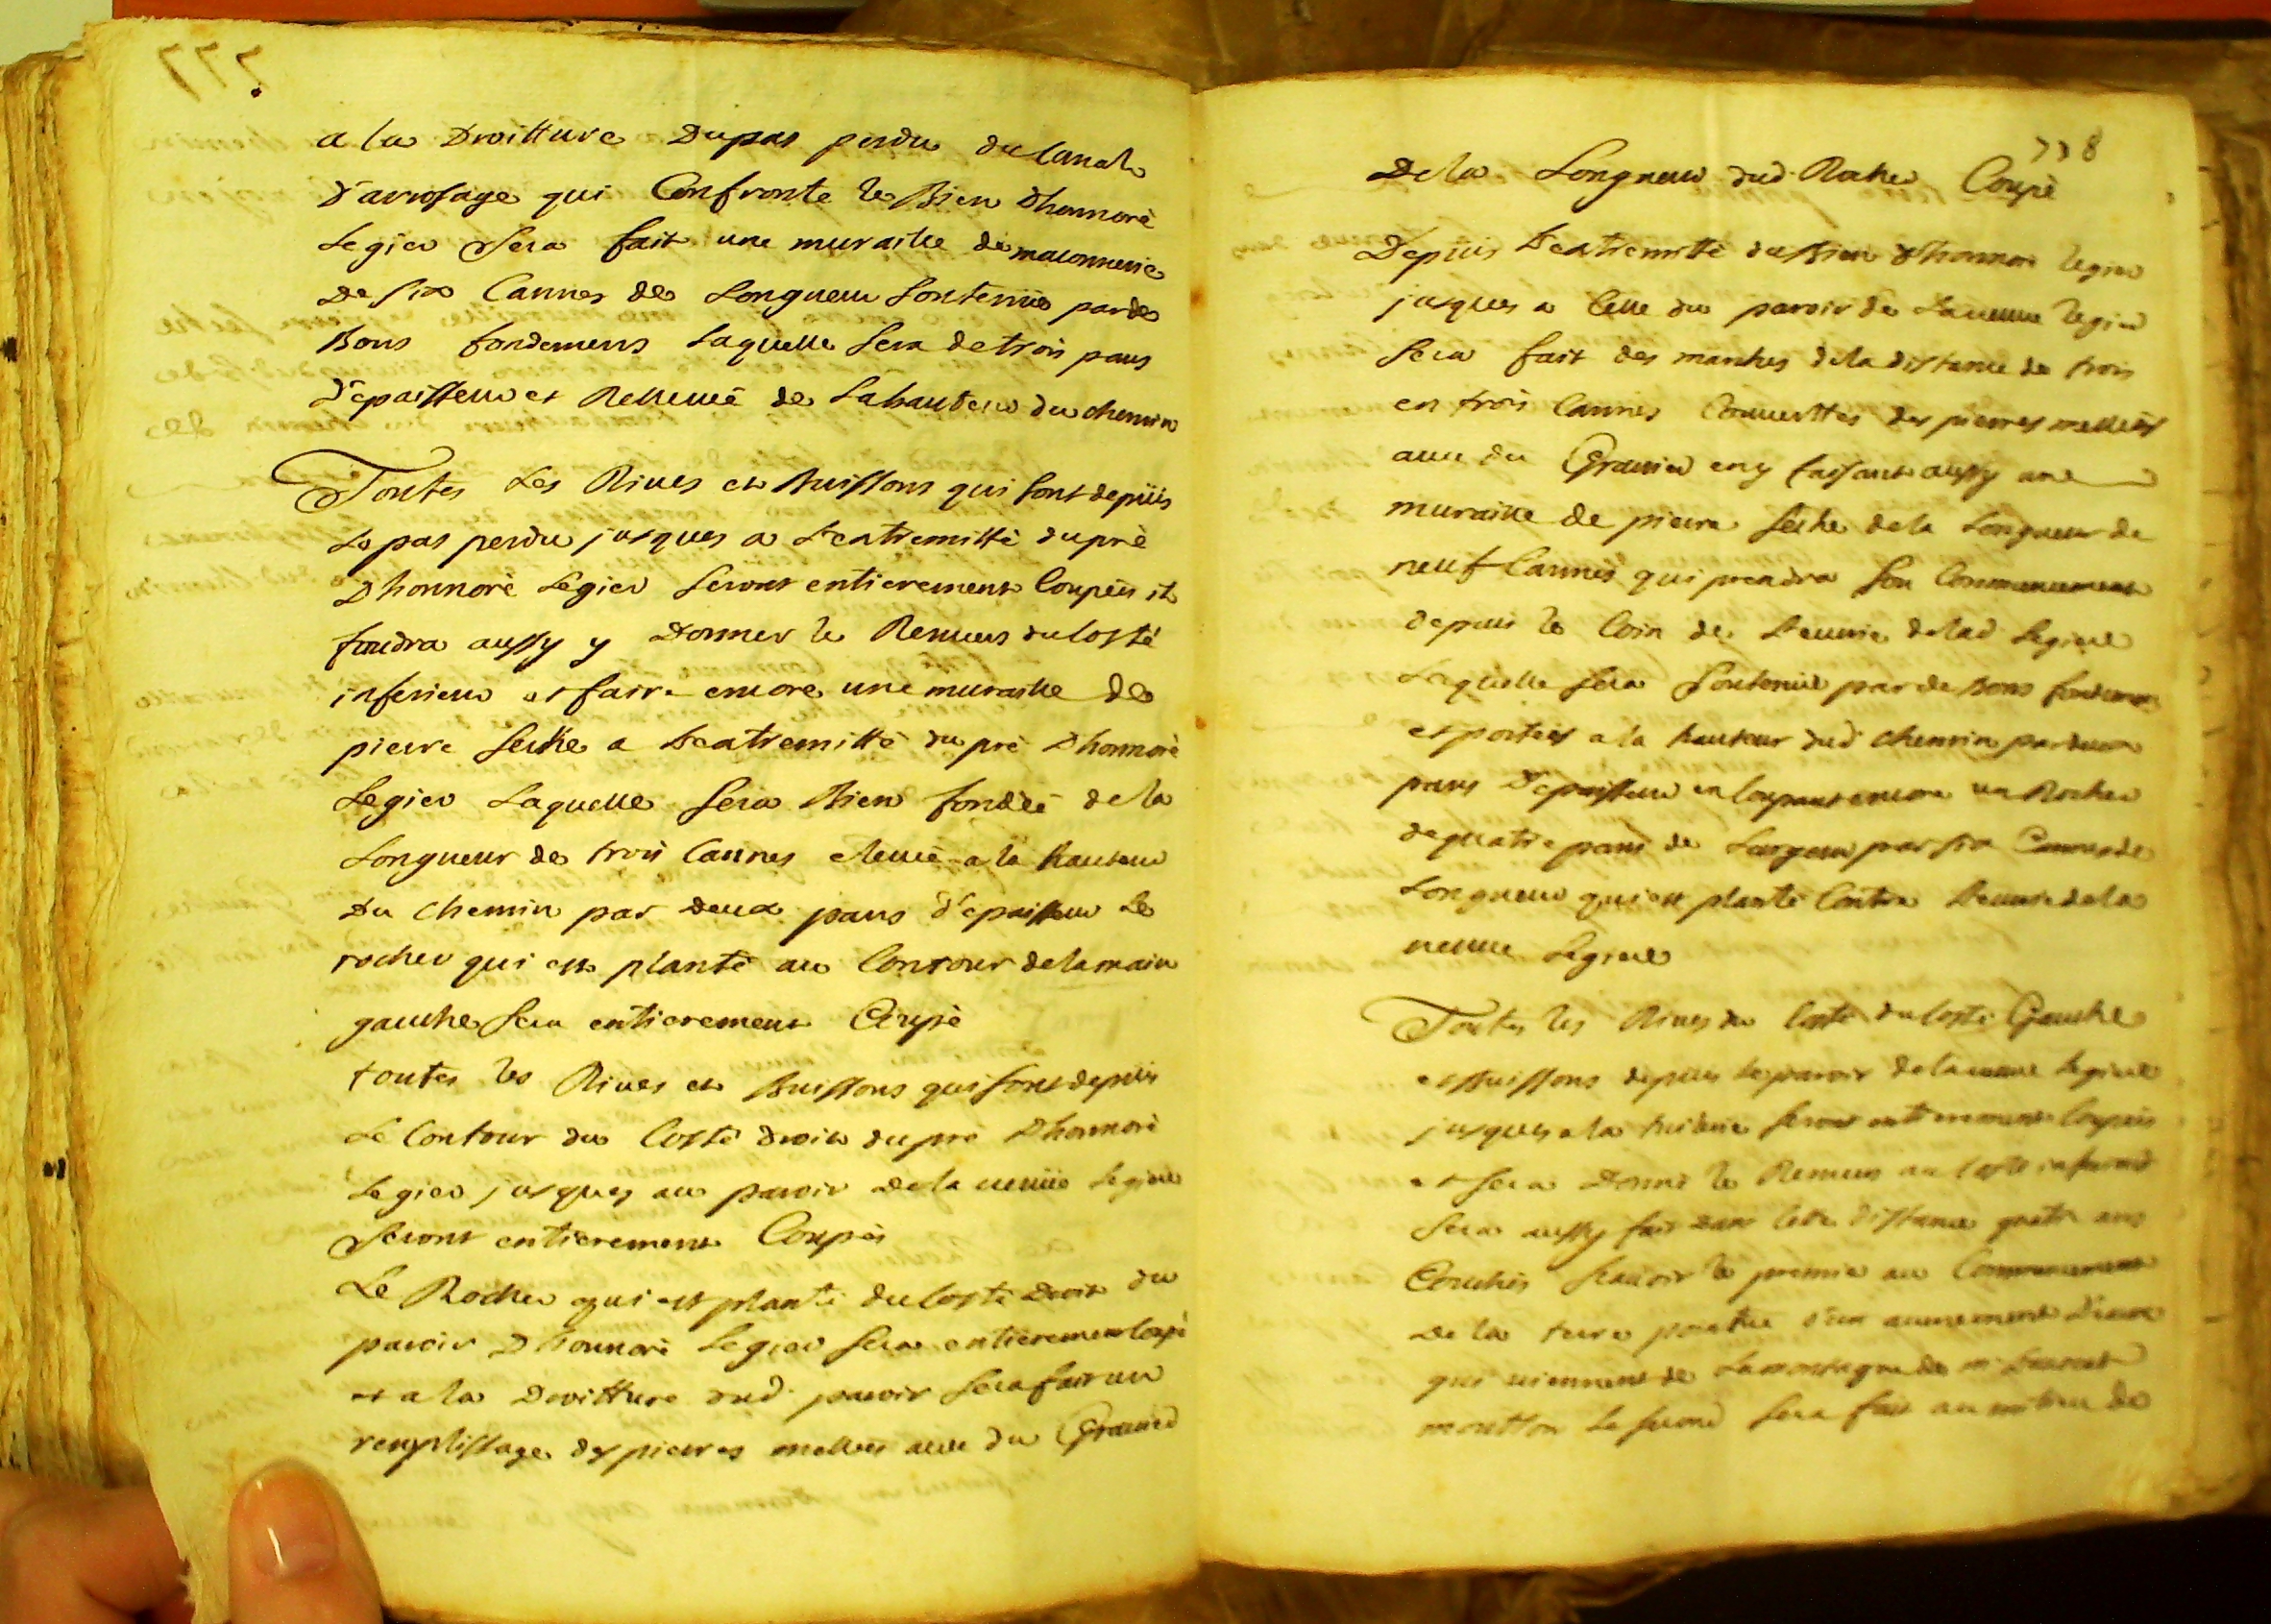 a la Droitture Dupas perdu du Canal
D'arrosage qui Confronte le Bien Dhonnoré
Legier Sera fait une muraille de maconnerie
De six Cannes de Longueur Soutenüe par de
Bons fondemens Laquelle Sera de trois pans
D'epaisseur et Rellevée de La hauteur du chemin
Toutes Les Rives et Buissons qui sont depüis
Le pas perdu jusques a L'extremitté du pré
Dhonnoré Legier Seront entierement Coupées il
faudra aussy y Donner le Renvers du Costé
inferieur et faire encore une muraille de
pierre seche a L'extremitté du pré Dhonnoré
Legier Laquelle Sera Bien fondée de la
Longueur de trois Cannes elevée a la hauteur
Du chemin par deux pans d'epaisseur Le
rocher qui est planté au Contour de la main
gauche Sera entierement Coupé
toutes les Rives et Buissons qui sont depüis
Le Contour du Costé droit du pré Dhonnoré
Legier jusques au paroir de la veuve Legiere
Seront entierement Coupés
Le Rocher qui est planté du Costé Droit du
paroir Dhonnoré Legier sera entierement Coupé
et a la Droitture dud. paroir Sera fait un
remplissage des pierres mellées avec du Gravier
778
De la Longueur dud. Rocher Coupé
Depüis L'extremitté du Bien Dhonnoré Legier
jusques a Celle du paroir de La veuve Legier
Sera fait des marches de la distance de trois
en trois Cannes Couverttes des pierres mellées
avec du Gravier en y faisant aussy une
muraille de pierre Seche de la Longueur de
neuf Cannes qui prendra Son Commencement
depuis le Coin de L'ecurie de lad Legiere
Laquelle Sera Soutenüe par de Bons fondemens
et portée a la hauteur dud chemin par deux
pans D'epaisseur en Coupant encore un Rocher
de quatre pans de Largeur par six Cannes de
Longueur qui est planté Contre L'ecurie de la
veuve Legiere
Toutes les Rives du Costé du Costé Gauche
et Buissons depuis le paroir de la veuve Legiere
jusques a la Seront entierement Coupées
et Sera Donné le Renvers au Costé inferieur
Sera aussy fait dans Cette distance quatre
Couchés Scauoir le premier au Commencement
De la terre
qui viennent de La montagne de mr.
moutton Le second Sera fait au milieu de